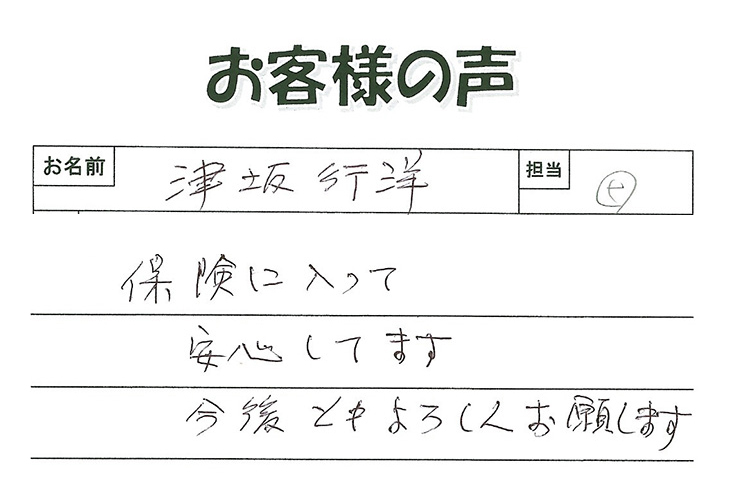 お客様の声
お名前 津坂行洋 担当 セ
保険に入って
安心してます
今後ともよろしくお願いします